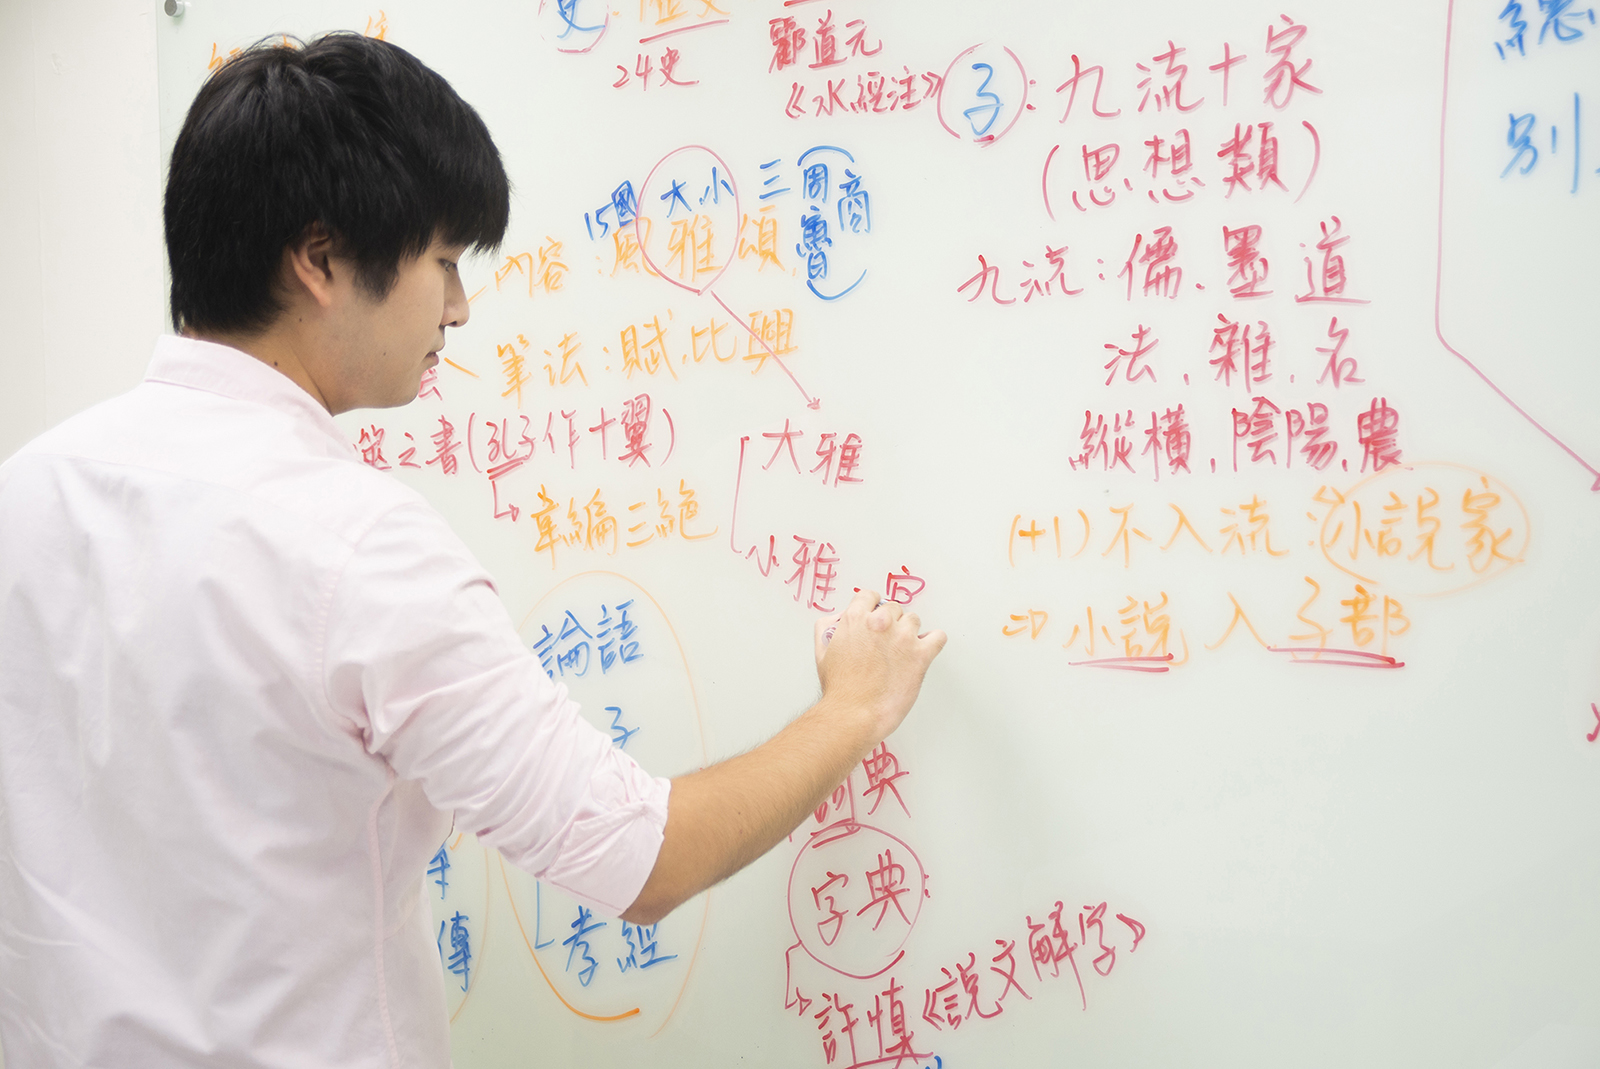 史：
24史
酈道元
《水經注》
子：九流十家
(思想類)
九流：儒、墨、道
法、雜、名
縱橫、陰陽、農
(+1)不入流：小說家
⇒小說入子部
總
別
15國 大、小 三 周 魯 商
內容：風 雅 頌
筆法：賦、比、興
筮之書(孔子作十翼)
韋編三絕
大雅
小雅：宴
論語
子
孝經
傳
詞典
字典：
許慎《說文解字》